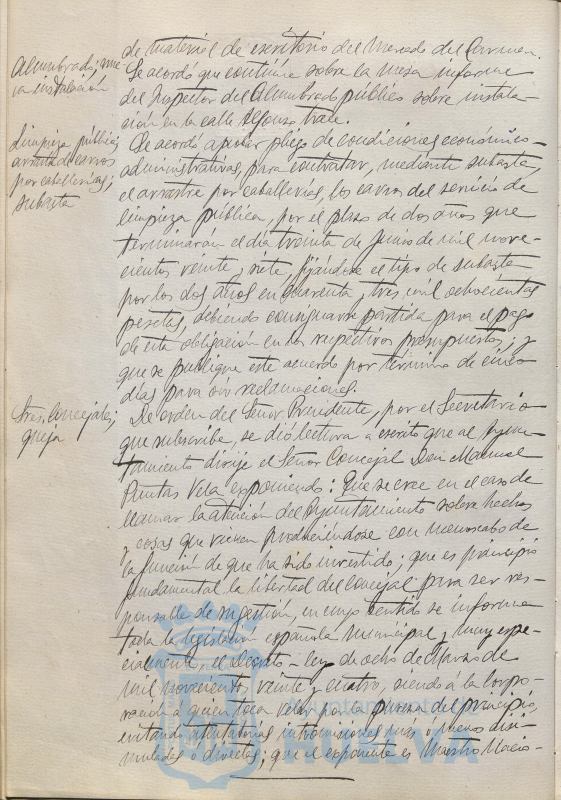 de material de escritorio del Mercado del Carmen.
Alumbrado; nue-
va instalación
Se acordó que continúe sobre la mesa informe
del Inspector del Alumbrado público sobre instala-
ción en la calle Alfonso trece.
Limpieza pública
arrastre de carros
por caballerías;
subasta
Se acordó aprobar pliego de condiciones económico-
administrativas, para contratar, mediante subasta,
el arrastre por caballerías, los carros del servicio de
limpieza pública, por el plazo de dos años que
terminarán el día treinta de Junio de mil nove-
cientos veinte y siete, fijándose el tipo de subasta
por los dos años en cuarenta y tres mil ochocientas
pesetas, debiendo consignarse partida para el pago
de esta obligación en los respectivos presupuestos; y
que se publique este acuerdo por término de cinco
días para oir reclamaciones.
Sres. Concejales;
queja
De orden del Señor Presidente, por el Secretario
que subscribe, se dió lectura a escrito que al Ayun-
tamiento dirije el Señor Concejal Don Manuel
Puntas Vela exponiendo: Que se cree en el caso de
llamar la atención del Ayuntamiento sobre hechos
y cosas que vienen produciéndose con menoscabo de
la función de que ha sido investido; que es principio
fundamental la libertad del concejal para ser res-
ponsable de su gestión, en cuyo sentido se informa
toda la legislación española Municipal y muy espe-
cialmente, el Decreto-ley de ocho de Marzo de
mil novecientos veinte y cuatro, siendo á la Corpo-
ración a quien toca velar por la pureza del principio,
evitando intromisiones más ó menos disi-
muladas o directas; que el exponente es Maestro Nacio-
Ayuntamiento de
HUELVA